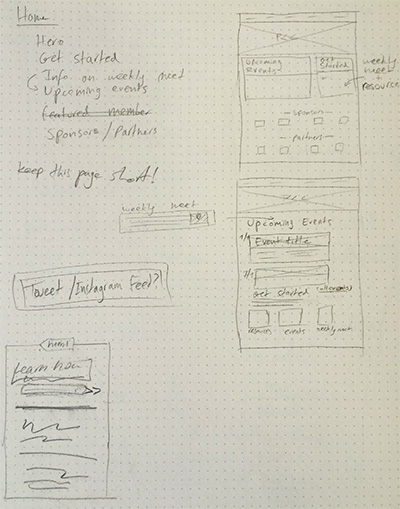 Home
Hero
Get started
Info on weekly meet
Upcoming events
Featured member
Sponsors/Partners
keep this page short!
Tweet/Instagram Feed?
Learn how
Upcoming
Events
Get
Started
weekly
meet
+
resource
Sponsors
Partners
weekly meet
Upcoming Events
Event title
Get Started
resources
events
weekly meet